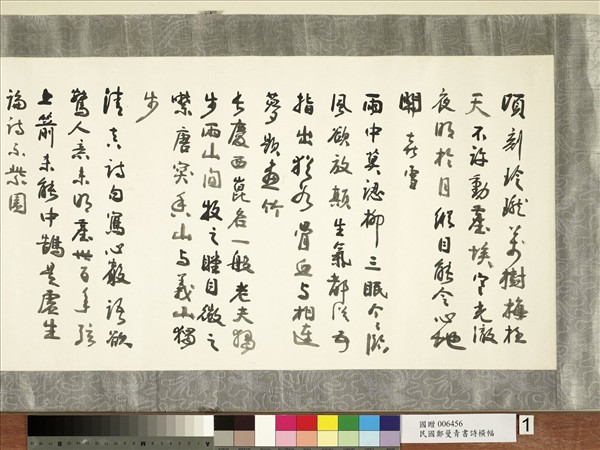 頃刻玲瓏萬樹梅極
天不許動塵埃光澈
夜明於月縱目能令心地
開 喜雪
雨中莫認柳三眠今臨
風欲放顛生氣都從五
指出猶如骨血與相連
夢畫竹
長慶西崑各一般老夫獨
步兩山間牧之瞠目微之
噤唐突香山與義山 獨
步
詩句寫心聲語欲
驚人意未明塵世百年弦
上箭未能中鵠是虛生
論詩示紫園
國贈 006456
民國鄭曼青書詩橫幅
1